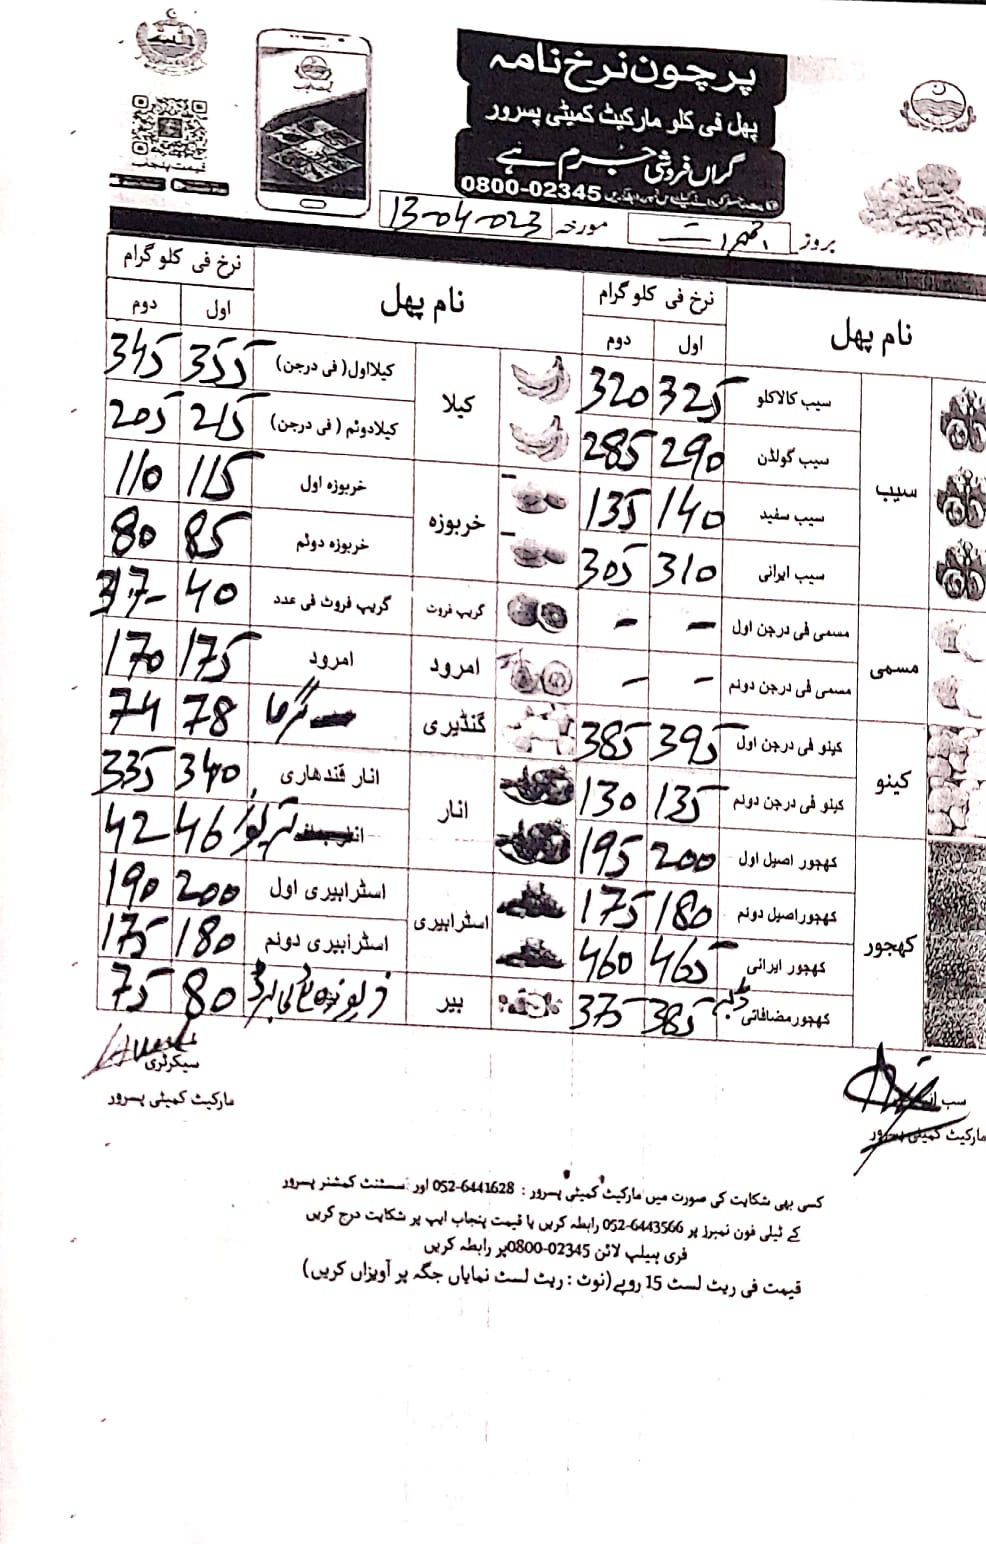 پرچون نرخ نامہ
پھل فی کلو مارکیٹ کمیٹی پسرور
گراں فروشی جرم ہے
0800-02345
قیمت پنجاب
بروز جمعرات مورخہ 13-04-023
نام پھل نرخ فی کلو گرام
اول دوم
سیب
سیب کالاکلو 325 320
سیب گولڈن 290 285
سیب سفید 140 135
سیب ایرانی 310 305
مسمی
مسمی فی درجن اول - -
مسمی فی درجن دوئم - -
کینو
کینو فی درجن اول 395 385
کینو فی درجن دوئم 135 130
کھجور
کھجور اصیل اول 200 195
کھجور اصیل دوئم 180 175
کھجور ایرانی 465 460
کھجور مضافاتی ڈبہ 385 375
نام پھل نرخ فی کلو گرام
اول دوم
کیلا
کیلا اول (فی درجن) 355 345
کیلا دوئم (فی درجن) 215 205
خربوزہ
خربوزہ اول 115 110
خربوزہ دوئم 85 80
گریپ فروٹ
گریپ فروٹ فی عدد 40
امرود
امرود 175 170
گنڈیری
گرما 78 74
انار
انار قندھاری 340 335
تربوز 46 42
اسٹرابیری
اسٹرابیری اول 200 190
اسٹرابیری دوئم 180 175
بیر
80 75
سیکرٹری
مارکیٹ کمیٹی پسرور
سب
مارکیٹ کمیٹی پسرور
کسی بھی شکایت کی صورت میں مارکیٹ کمیٹی پسرور : 052-6441628 اور اسسٹنٹ کمشنر پسرور
کے ٹیلی فون نمبرز پر 052-6443566 رابطہ کریں یا قیمت پنجاب ایپ پر شکایت درج کریں
فری ہیلپ لائن 0800-02345 پر رابطہ کریں
قیمت فی ریٹ لسٹ 15 روپے (نوٹ : ریٹ لسٹ نمایاں جگہ پر آویزاں کریں)